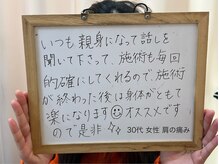 いつも親身になって話しを
聞いて下さって、施術も毎回
的確にしてくれるので施術
が終わった後は身体がとても
楽になります オススメです
ので是非
30代 女性 肩の痛み